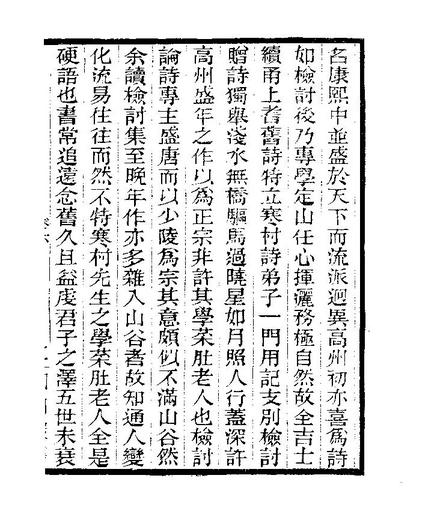 名康熙中並盛於天下而流派迥異高州初亦喜爲詩
如檢討後乃專學定山任心揮灑務極自然故全吉士
續甬上耆舊詩特立寒村詩弟子一門用記支別檢討
贈詩獨舉淺水無橋驅馬過曉星如月照人行蓋深許
高州盛年之作以爲正宗非許其學荣肚老人也檢討
論詩專主盛唐而以少陵爲宗其意頗似不滿山谷然
余讀檢討集至晚年作亦多雜入山谷者故知通人變
化流易往往而然不特寒村先生之學荣肚老人全是
硬語也書常追遠念舊久且益虔君子之澤五世未衰